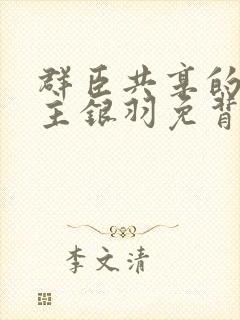 群臣共享的
主银羽免背
李文清